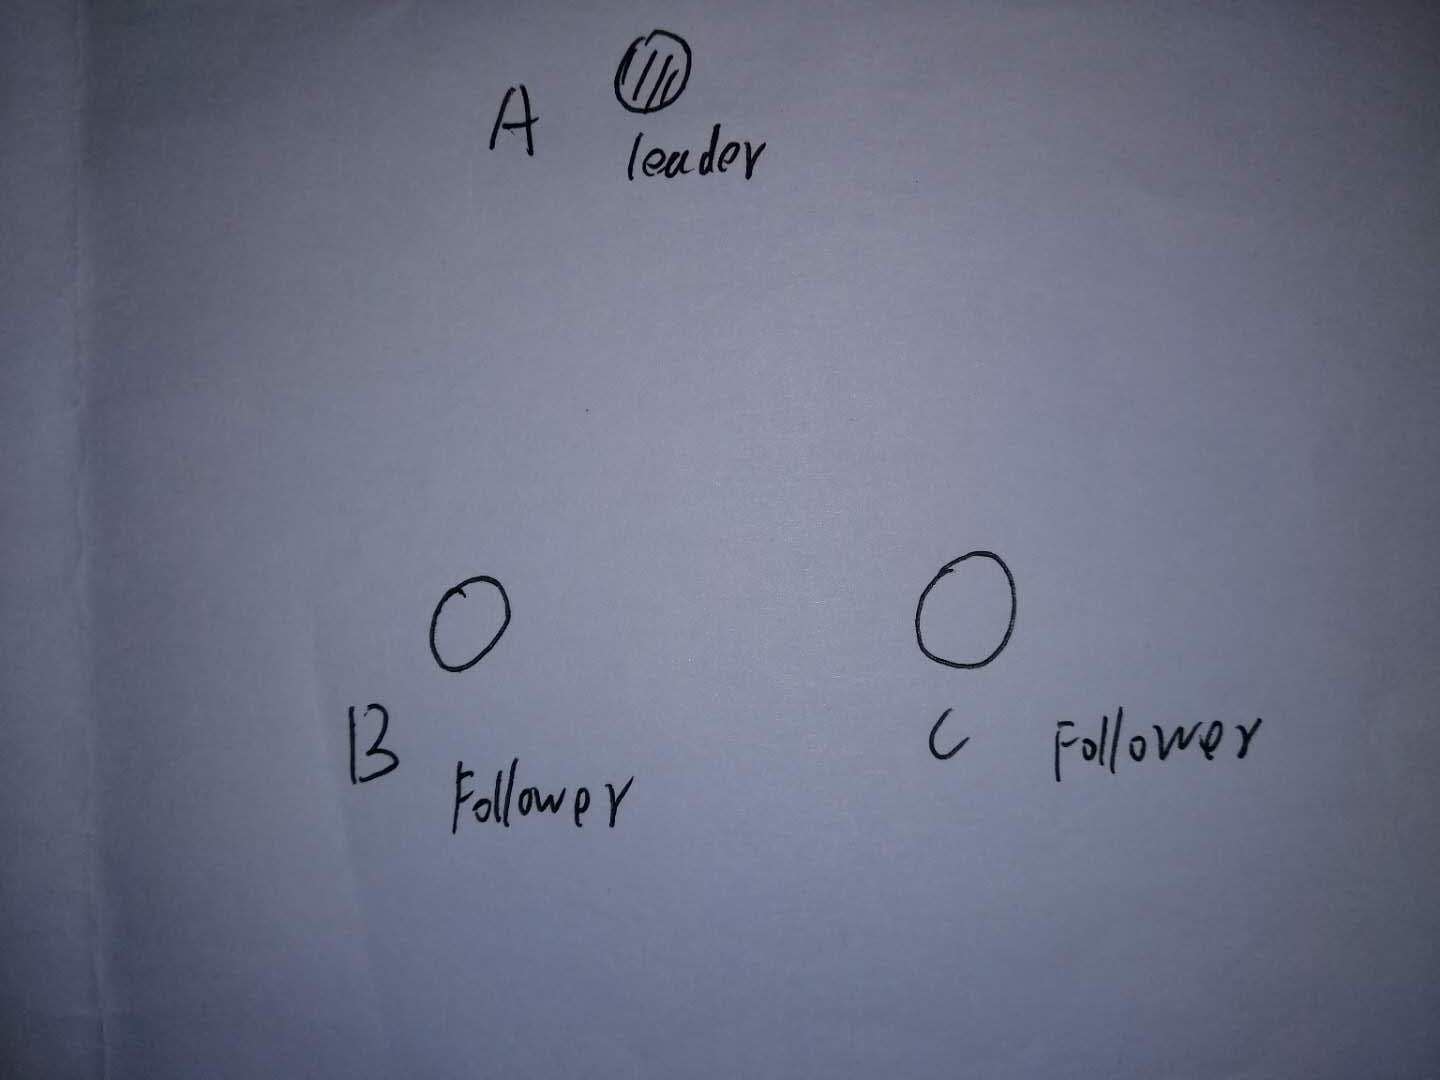 A
leader
B
Follower
C
Follower